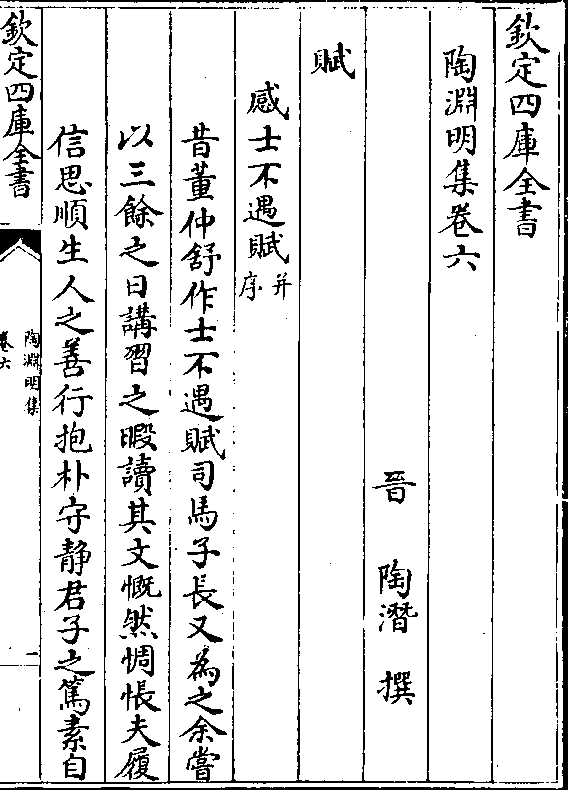 欽定四庫全書
陶淵明集卷六
晉 陶潛 撰
賦
感士不遇賦并序
昔董仲舒作士不遇賦司馬子長又為之余嘗
以三餘之日講習之暇讀其文慨然惆悵夫履
信思順生人之善行抱朴守静君子之篤素自
欽定四庫全書
陶淵明集
卷六
一